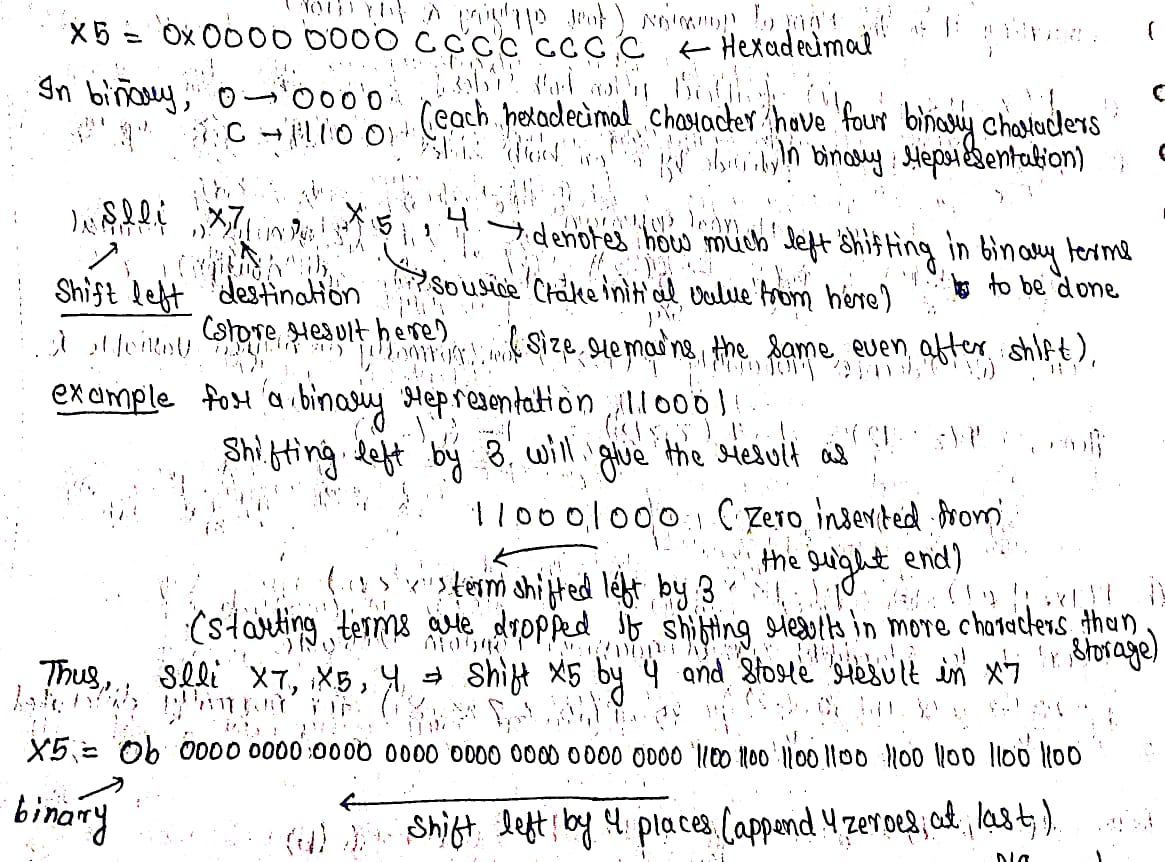 X5 = 0x 0000 0000 CCCC CCCC ← Hexadecimal
In binary, 0 → 0000
C → 1100 (each hexadecimal character have four binary characters
In binary representation)
Slli X7, X5, 4 → denotes how much left shifting in binary terms
Shift left destination source (take initial value from here) to be done
(store result here) (size remains the same even after shift)
example for a binary representation 110001
Shifting left by 3 will give the result as
110001000 (Zero inserted from
the right end)
term shifted left by 3
(starting terms are dropped if shifting results in more characters than
storage)
Thus, slli X7, X5, 4 ⇒ Shift X5 by 4 and store result in X7
X5 = 0b 0000 0000 0000 0000 0000 0000 0000 0000 1100 1100 1100 1100 1100 1100 1100 1100
binary
Shift left by 4 places (append 4 zeroes at last)